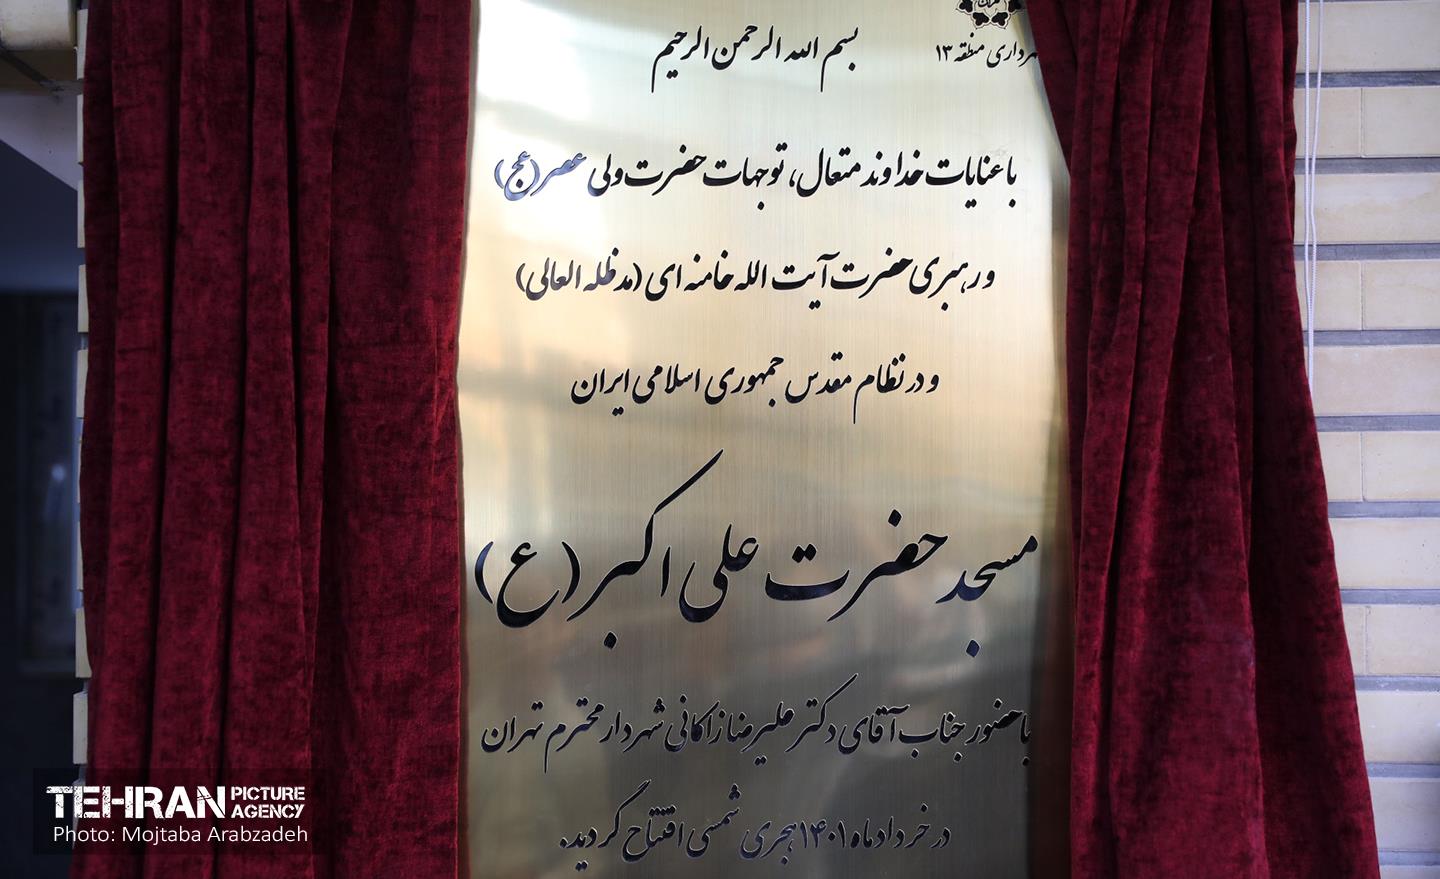 تهران
شهرداری منطقه ۱۳
بسم الله الرحمن الرحیم
با عنایات خداوند متعال، توجهات حضرت ولی عصر (عج)
و رهبری حضرت آیت الله خامنه ای (مدظله العالی)
و در نظام مقدس جمهوری اسلامی ایران
مسجد حضرت علی اکبر (ع)
با حضور جناب آقای دکتر علیرضا زاکانی شهردار محترم تهران
در خرداد ماه ۱۴۰۱ هجری شمسی افتتاح گردید.
TEHRAN PICTURE AGENCY
Photo: Mojtaba Arabzadeh